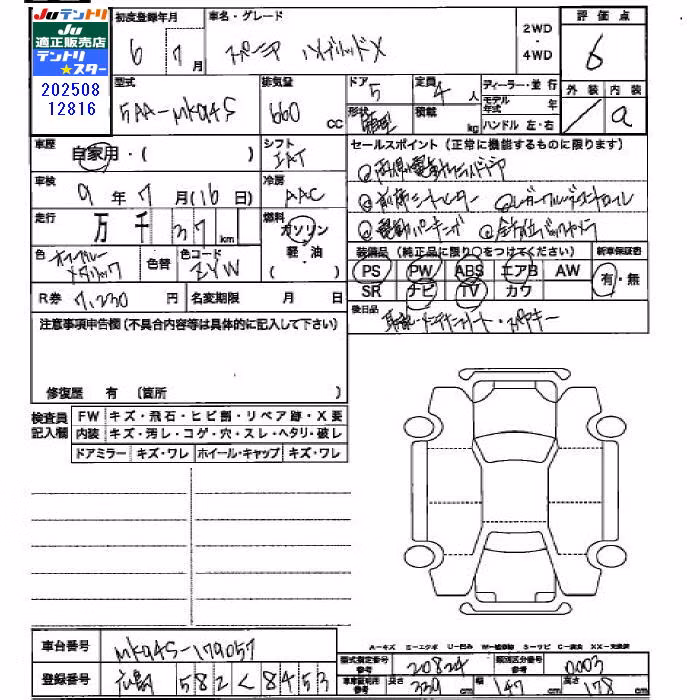 Juテントリ
Ju
適正販売店
テントリ
★スター
202508
12816
初度登録年月
6 7月
車名・グレード
スペーシア ハイブリッドX
2WD
・
4WD
評価点
6
外装 内装
a
型式
5AA-MK94S
排気量
660 cc
ドア
5
定員
4人
形状
積載
kg
ディーラー・並行
モデル年式 年
ハンドル 左・右
車歴
自家用・( )
シフト
IAT
車検
9年7月(16日)
冷房
AAC
走行
万千37km
燃料
ガソリン
軽・油
( )
色
メタリック
色替
色コード
ZYW
R券
7,230円
名変期限 月 日
セールスポイント(正常に機能するものに限ります)
①両側電動スライドドア
②前席シートヒーター
装備品(純正品に限り○をつけてください)
PS PW ABS エアB AW
SR ナビ TV カワ
新車保証書
有・無
後日品
取説・メンテナンスノート・スペアキー
注意事項申告欄(不具合内容等は具体的に記入して下さい)
修復歴 有 (箇所 )
検査員
記入欄
FW キズ・飛石・ヒビ割・リペア跡・X要
内装 キズ・汚レ・コゲ・穴・スレ・ヘタリ・破レ
ドアミラー キズ・ワレ ホイール・キャップ キズ・ワレ
車台番号
MK94S-179057
登録番号
広島 582 く 8453
型式指定番号
参考
20824
類別区分番号
参考
0003
車庫証明用
参考
長さ 339cm 幅 147cm 高さ 178cm